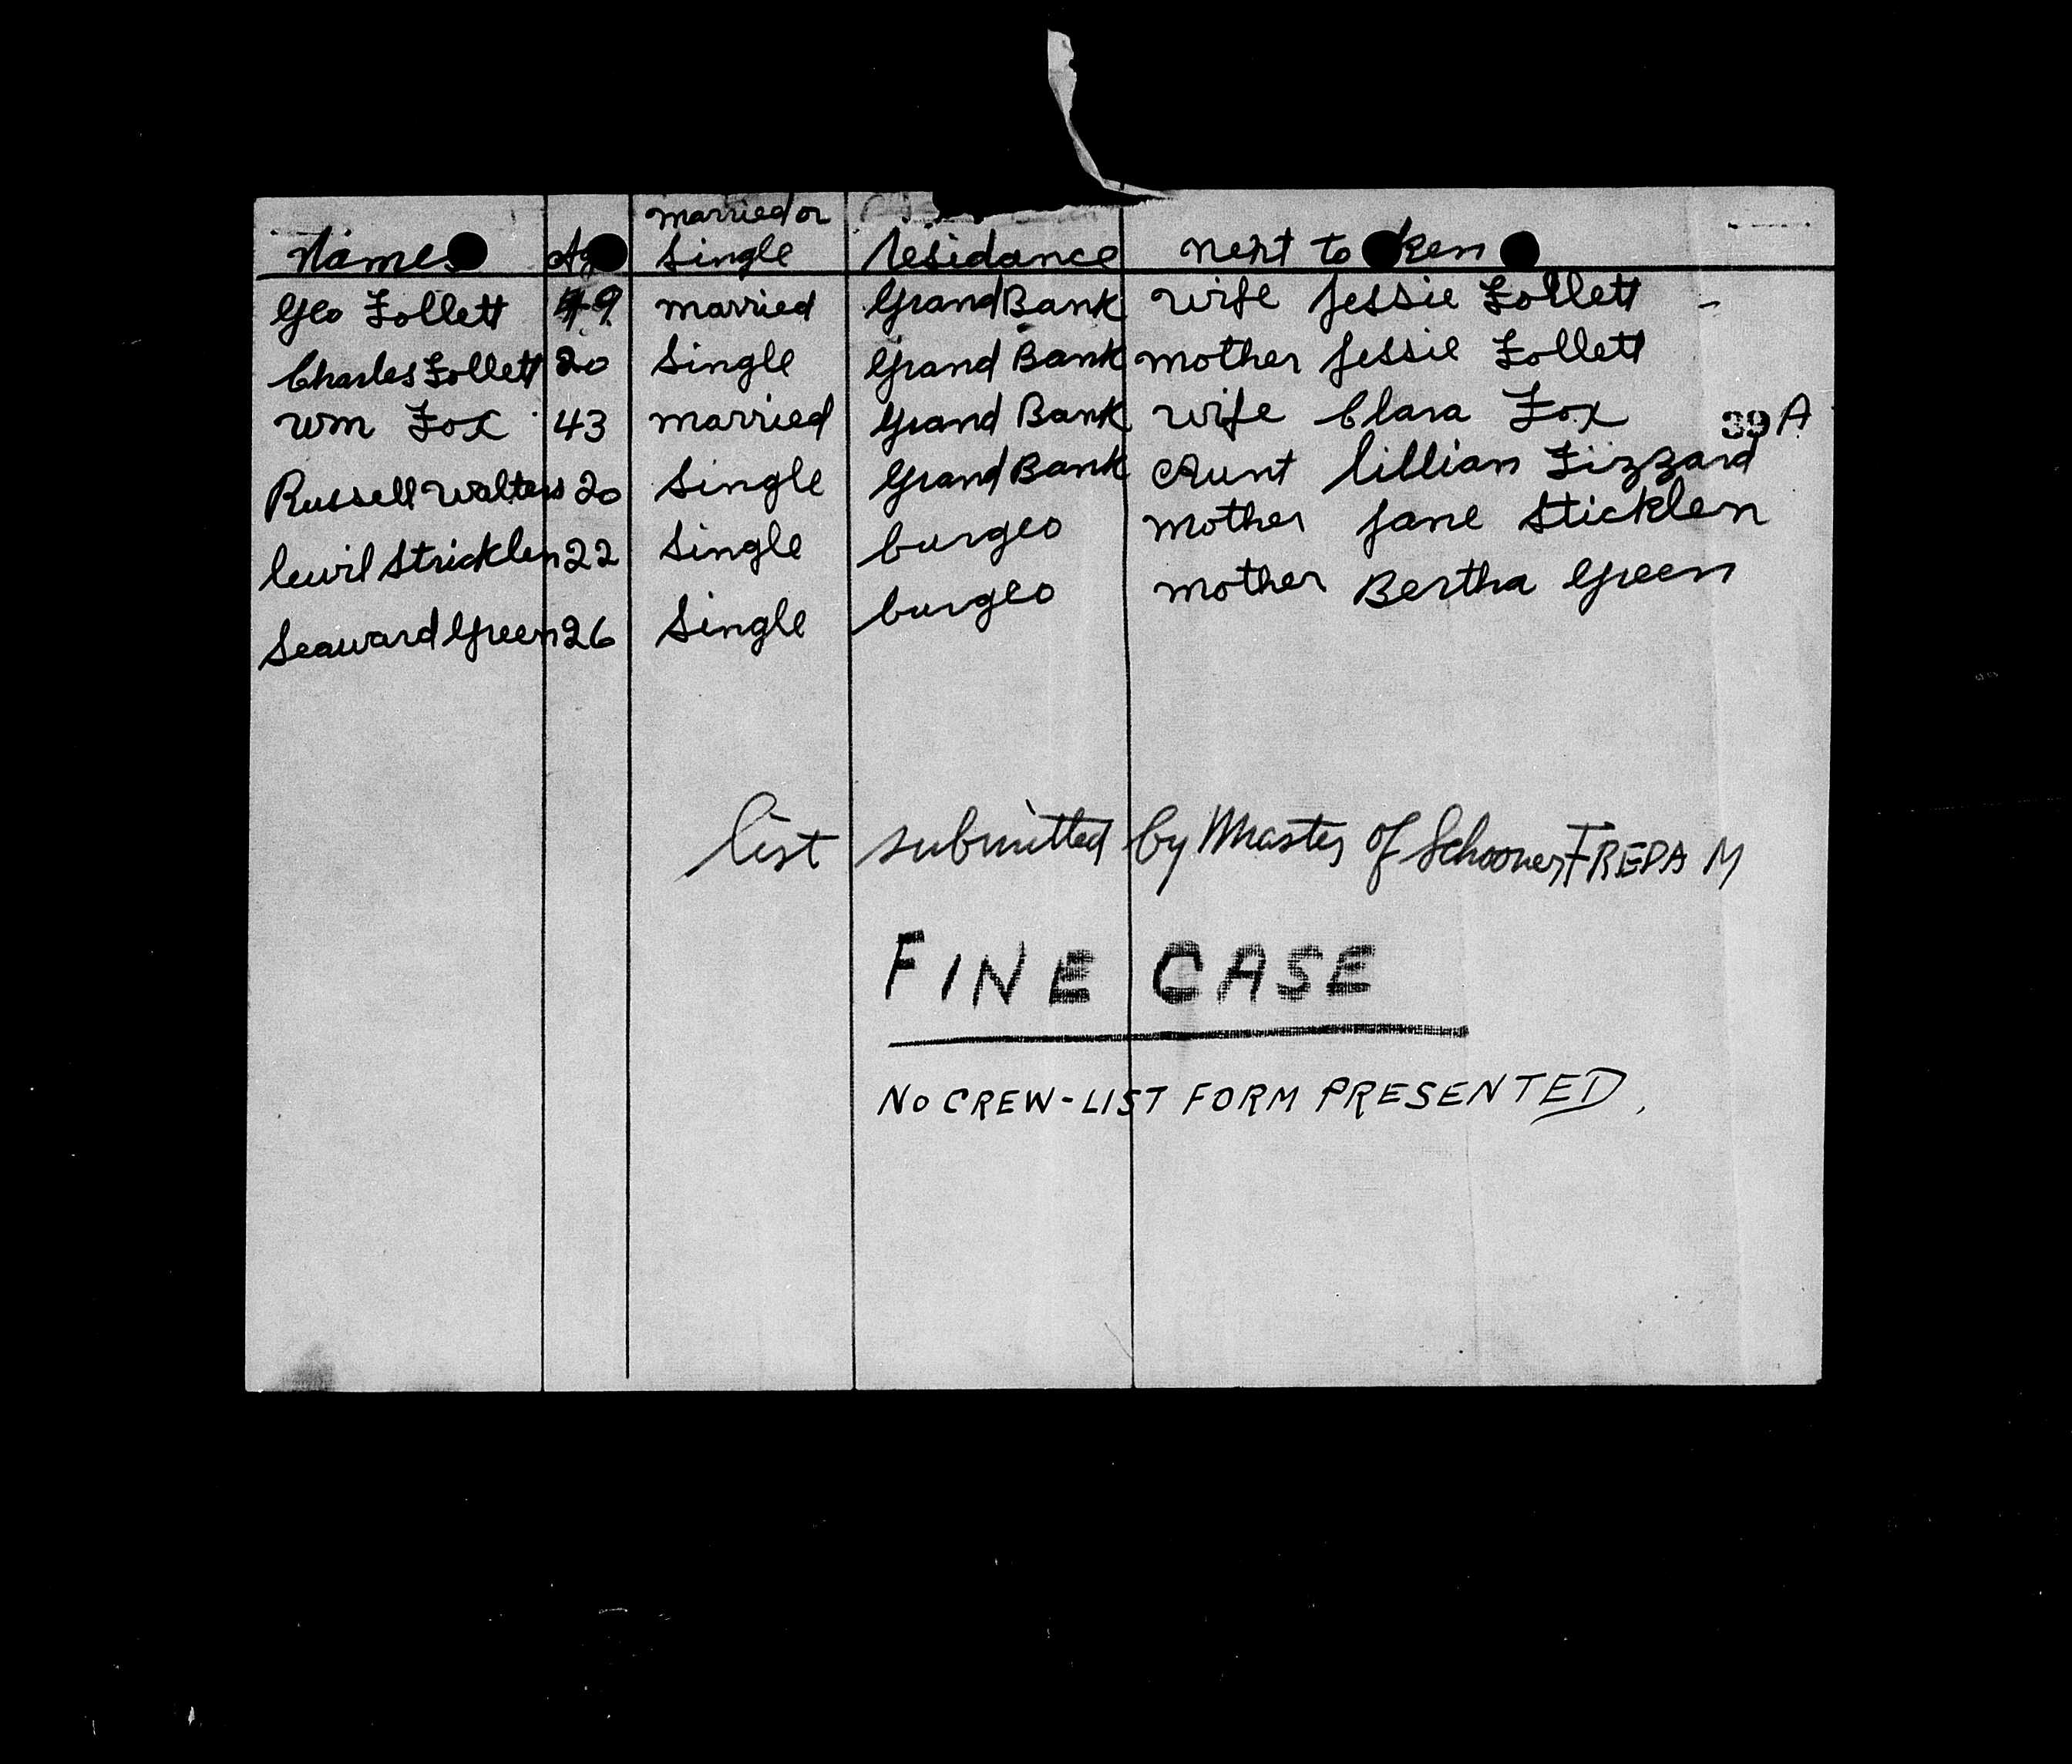 married or
Names Age Single Residance next to ken
Geo Follett 49 married Grand Bank wife Jessie Follett
Charles Follett 20 Single Grand Bank mother Jessie Follett
Wm Fox 43 married Grand Bank wife Clara Fox 39 A
Russell Walters 20 Single Grand Bank Aunt lillian Fizzard
lewil Stricklen 22 Single burgeo mother Jane Sticklen
Seaward Green 26 Single burgeo mother Bertha Green
list submitted by Master of Schooner FREDA M
FINE CASE
NO CREW-LIST FORM PRESENTED.